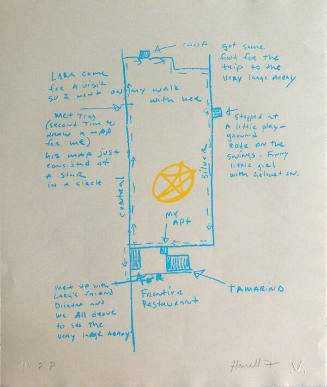 COOP
got some
food for the
trip to the
very large Array
LARA came
for A visit
so I went on my walk
with her
Met Tim
(second Tim to
draw a map
for me)
his map just
consisted of
A STAR
in a circle
Stopped at
A little play-
ground
Rode on the
swings. Funny
little girl
with helmet on.
Central
Silver
My
Apt
meet up with
Lara's friend
Dianna and
we All drove
to see the
very large Array
Frontier
Restaurant
TAMARIND